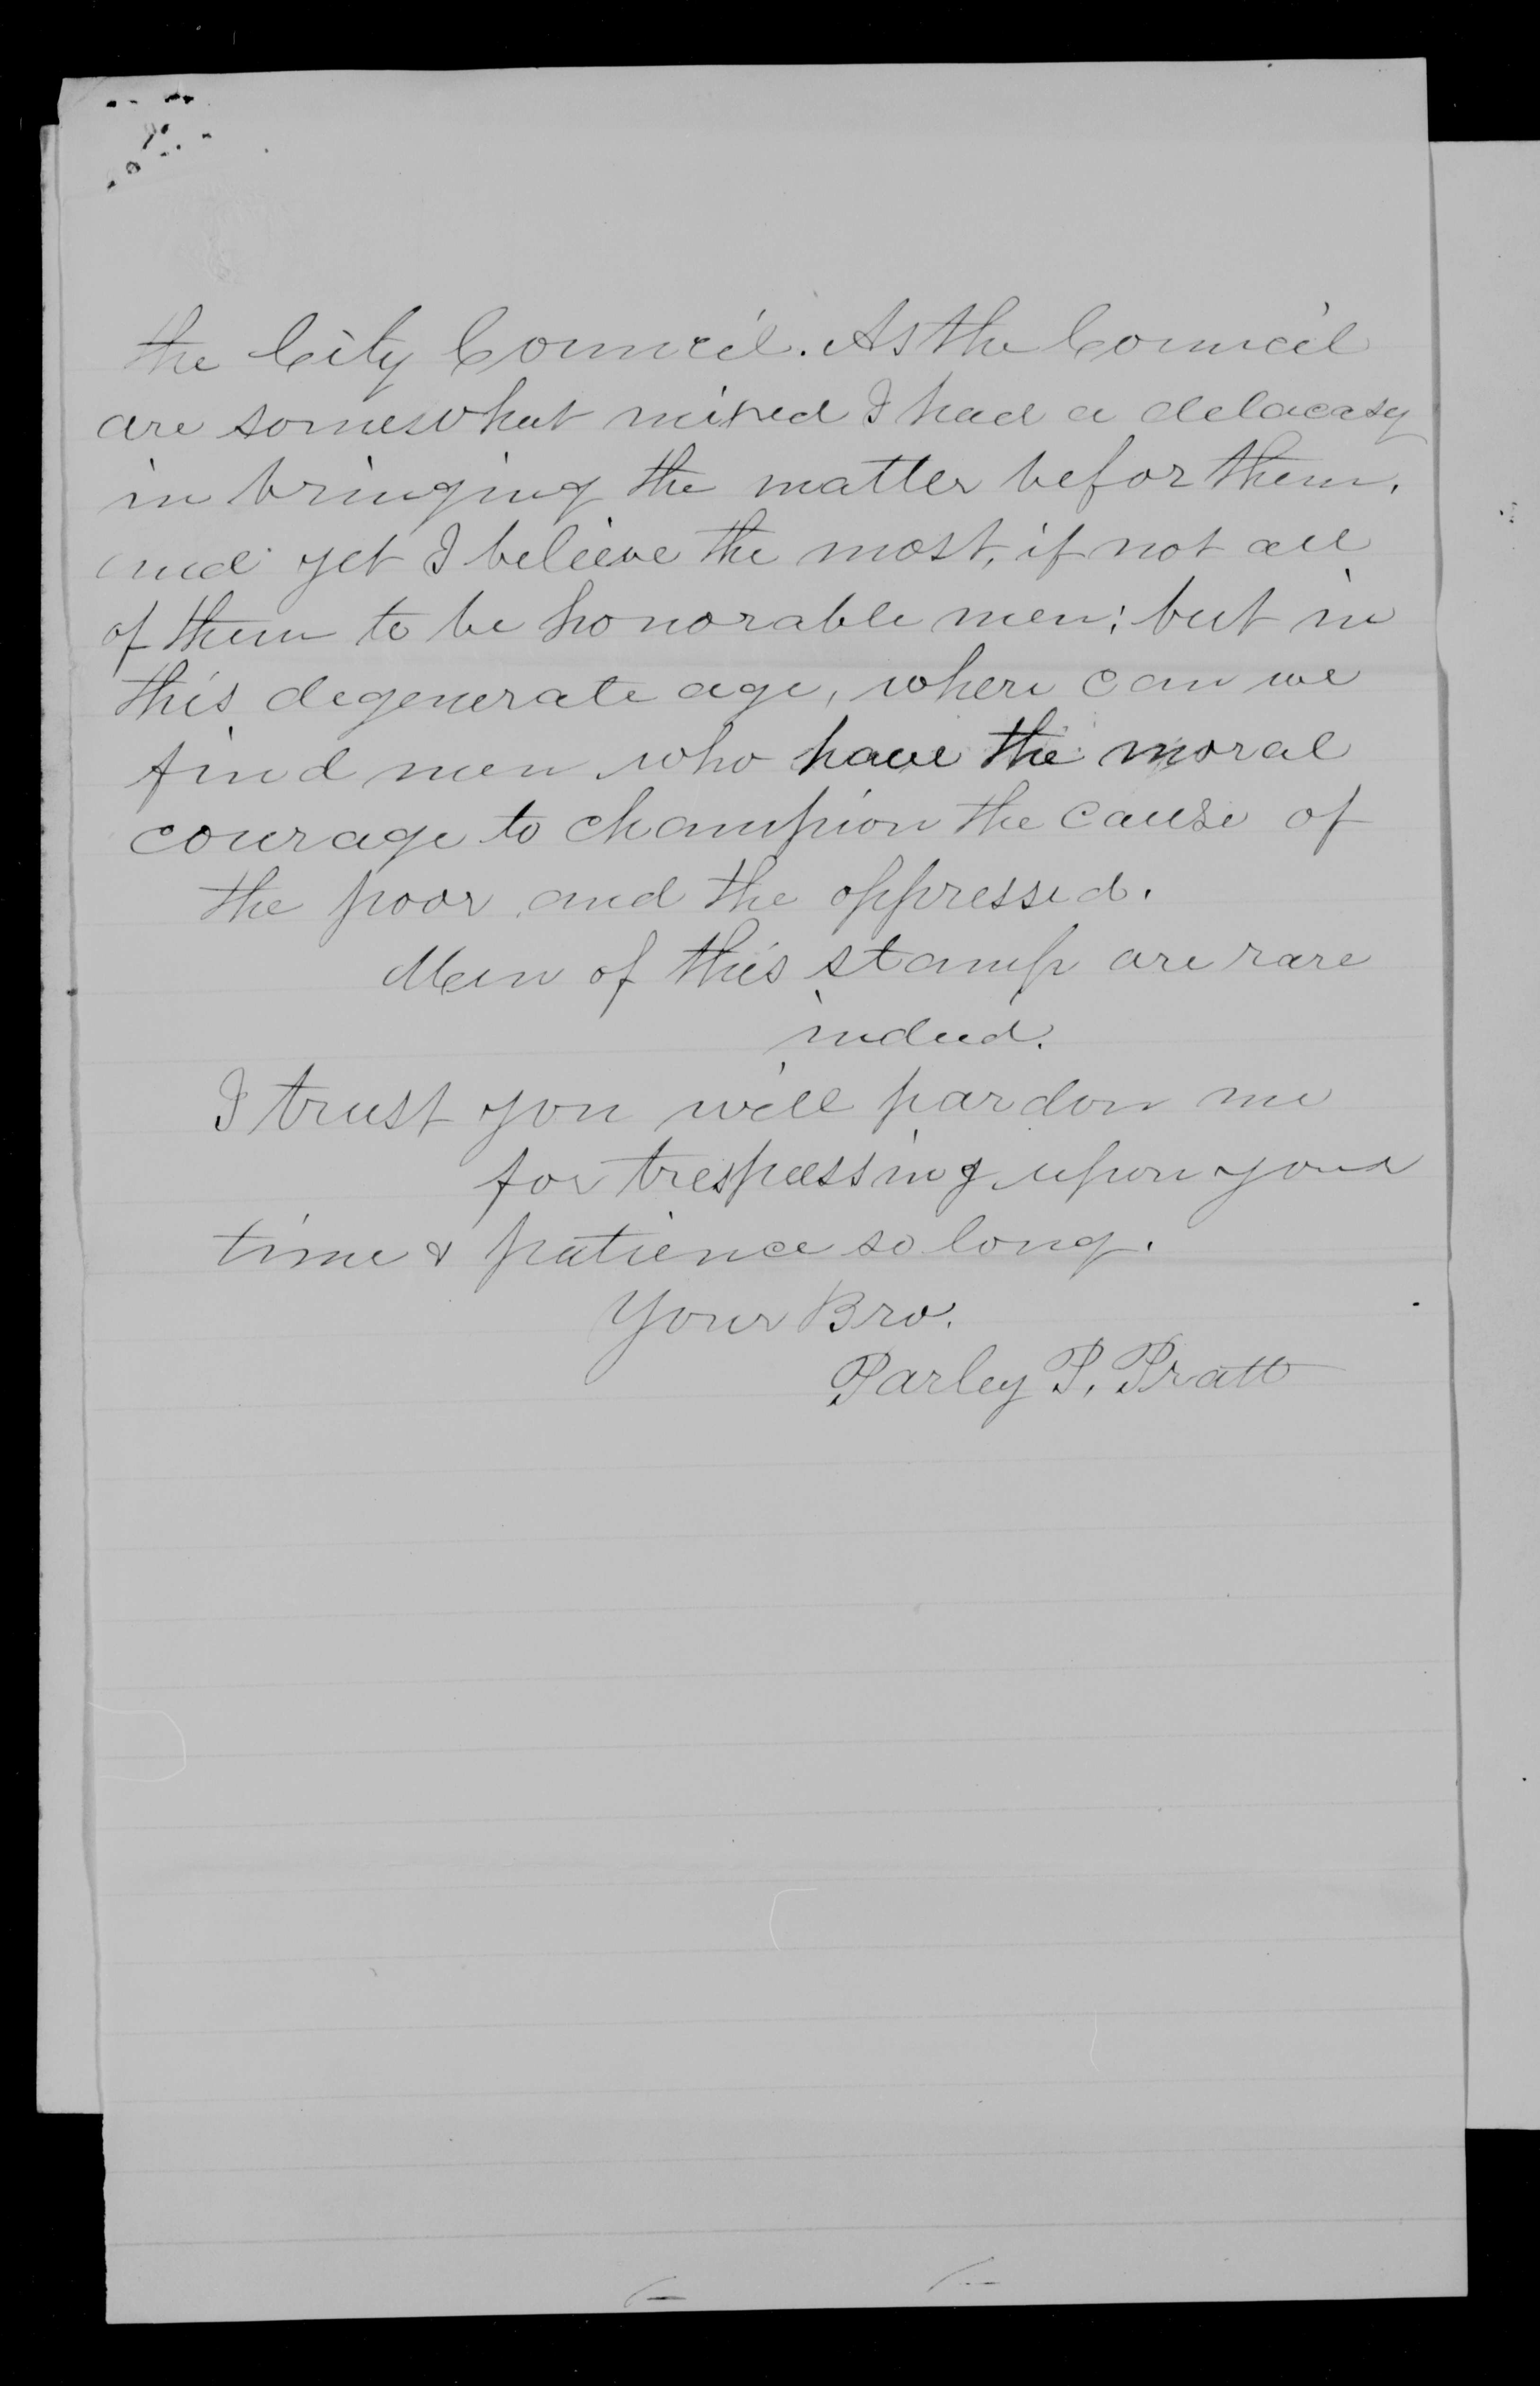 the City Council. As the Council
are somewhat mixed I had a delacasy
in bringing the matter befor them,
and yet I believe the most, if not all
of them to be honorable men; but in
this degenerate age, where can we
find men who have the moral
courage to champion the cause of
the poor and the oppressed.
Men of this stamp are rare
indeed.
I trust you will pardon me
for trespassing upon your
time & patience so long.
Your Bro.
Parley P. Pratt